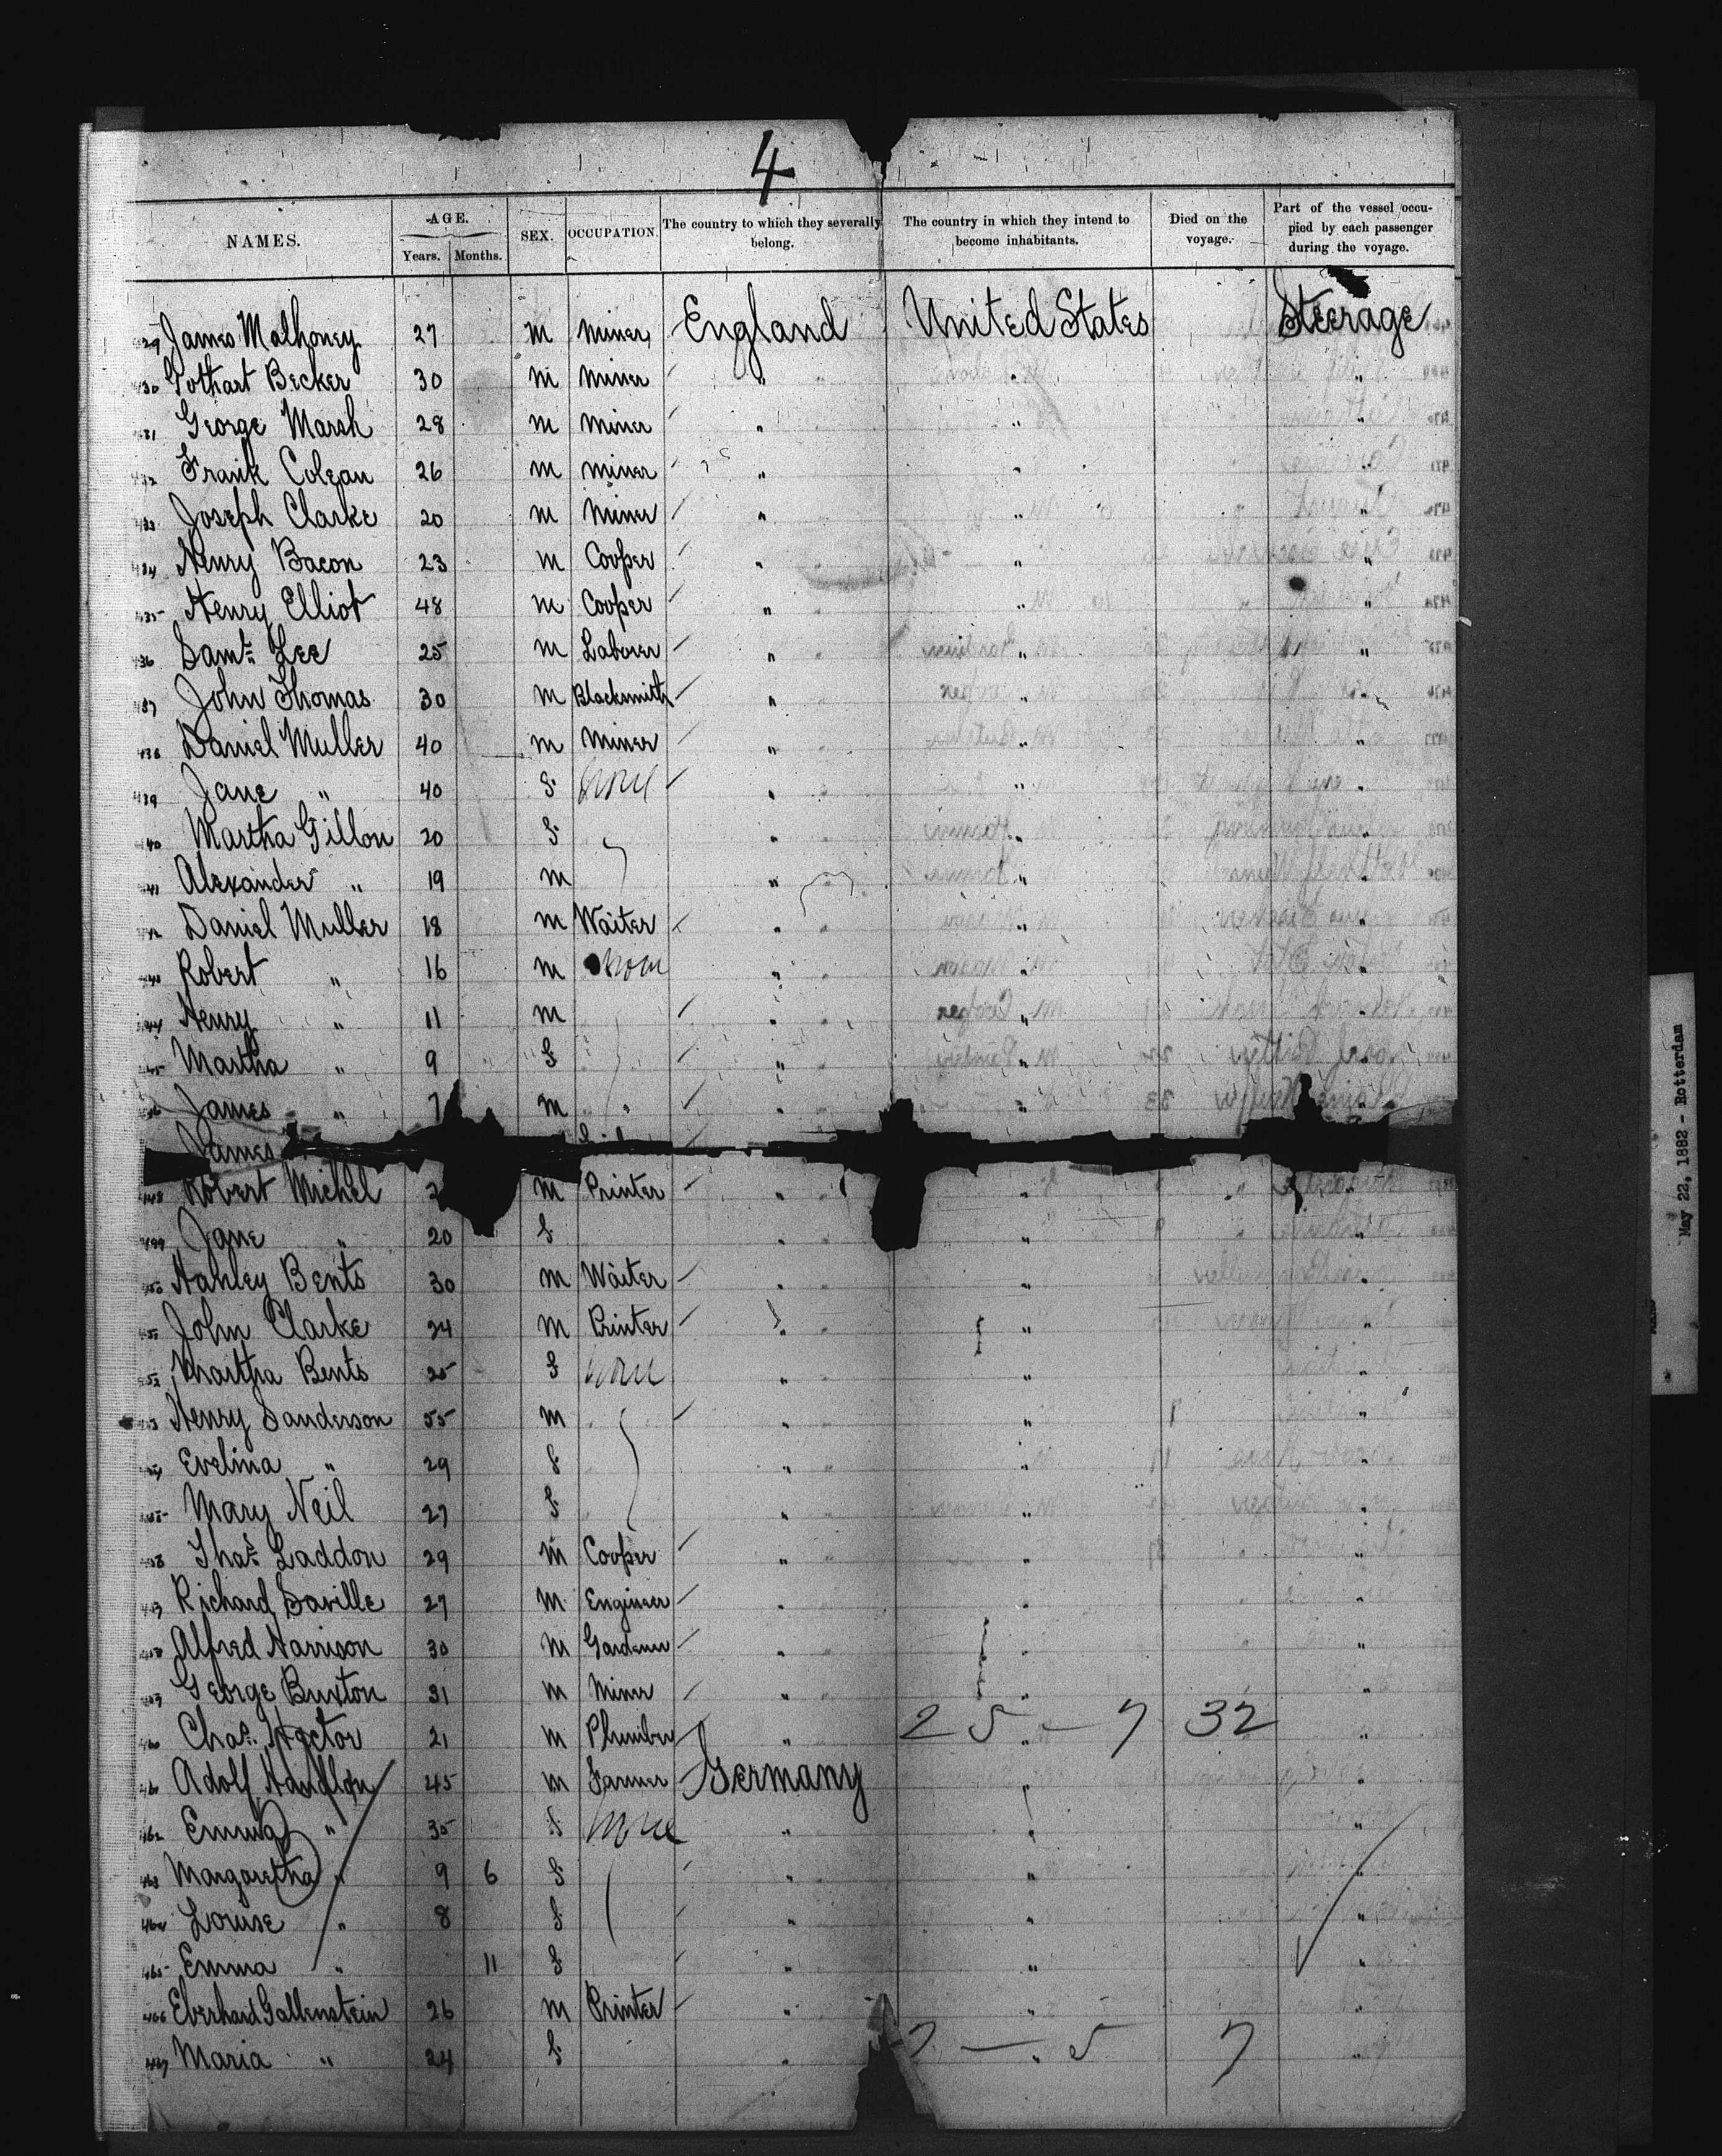 4
NAMES. AGE. Years. Months. SEX. OCCUPATION. The country to which they severally belong. The country in which they intend to become inhabitants. Died on the voyage. Part of the vessel occupied by each passenger during the voyage.
James Malhoney 27 M Miner England United States Steerage
430 Gothart Becker 30 M Miner " " "
431 George Marsh 28 M Miner " " "
432 Frank Colean 26 M Miner " " "
433 Joseph Clarke 20 M Miner " " "
434 Henry Bacon 23 M Cooper " " "
435 Henry Elliot 48 M Cooper " " "
436 Saml. Lee 25 M Laborer " " "
437 John Thomas 30 M Blacksmith " " "
438 Daniel Muller 40 M Miner " " "
439 Jane " 40 F None " " "
440 Martha Gillon 20 F " " "
441 Alexander " 19 M " " "
442 Daniel Muller 18 M Waiter " " "
443 Robert " 16 M None " " "
444 Henry " 11 M " " "
445 Martha " 9 F " " "
446 James " 7 M " " " "
James
448 Robert Michel M Printer " " "
449 Jane " 20 F " " "
450 Hanley Bents 30 M Waiter " " "
451 John Clarke 24 M Printer " " "
452 Martha Bents 25 F None " " "
453 Henry Sanderson 55 M " " "
454 Evelina " 29 F " " "
455 Mary Neil 27 F " " "
456 Thas. Laddon 29 M Cooper " " "
457 Richard Saville 27 M Engineer " " "
458 Alfred Harrison 30 M Gardener " " "
459 George Buxton 31 M Miner " " "
460 Chas. Hector 21 M Plumber " " "
25 - 7 32
461 Adolf 45 M Farmer Germany " "
462 Emma " 35 F None " " "
463 Margaretha " 9 6 F " " "
464 Louise " 8 F " " "
465 Emma " 11 F " " "
466 Eberhard Gallenstein 26 M Printer " " "
467 Maria " 24 F " " "
2 - 5 7
May 22, 1882 - Rotterdam